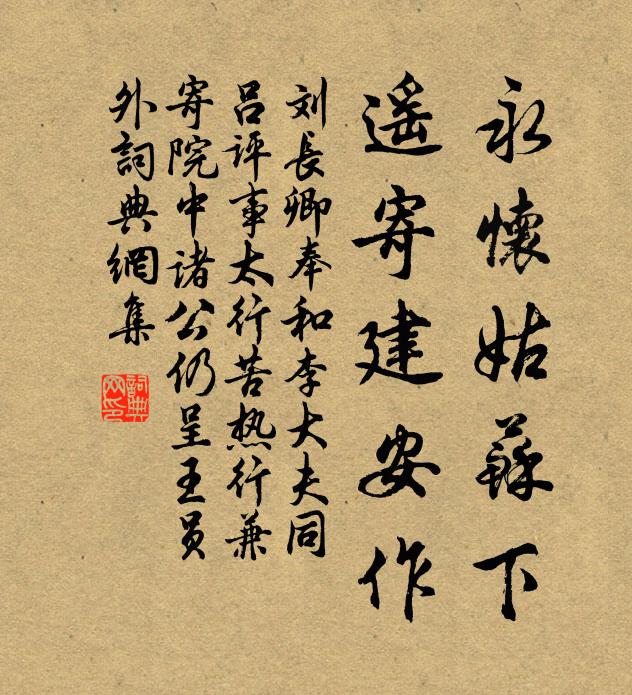 永懷姑蘇下
遥寄建安作
刘長卿奉和李大夫同
吕評事太行苦热行兼
寄院中諸公仍呈王员
外詞典網集
詞典
网印